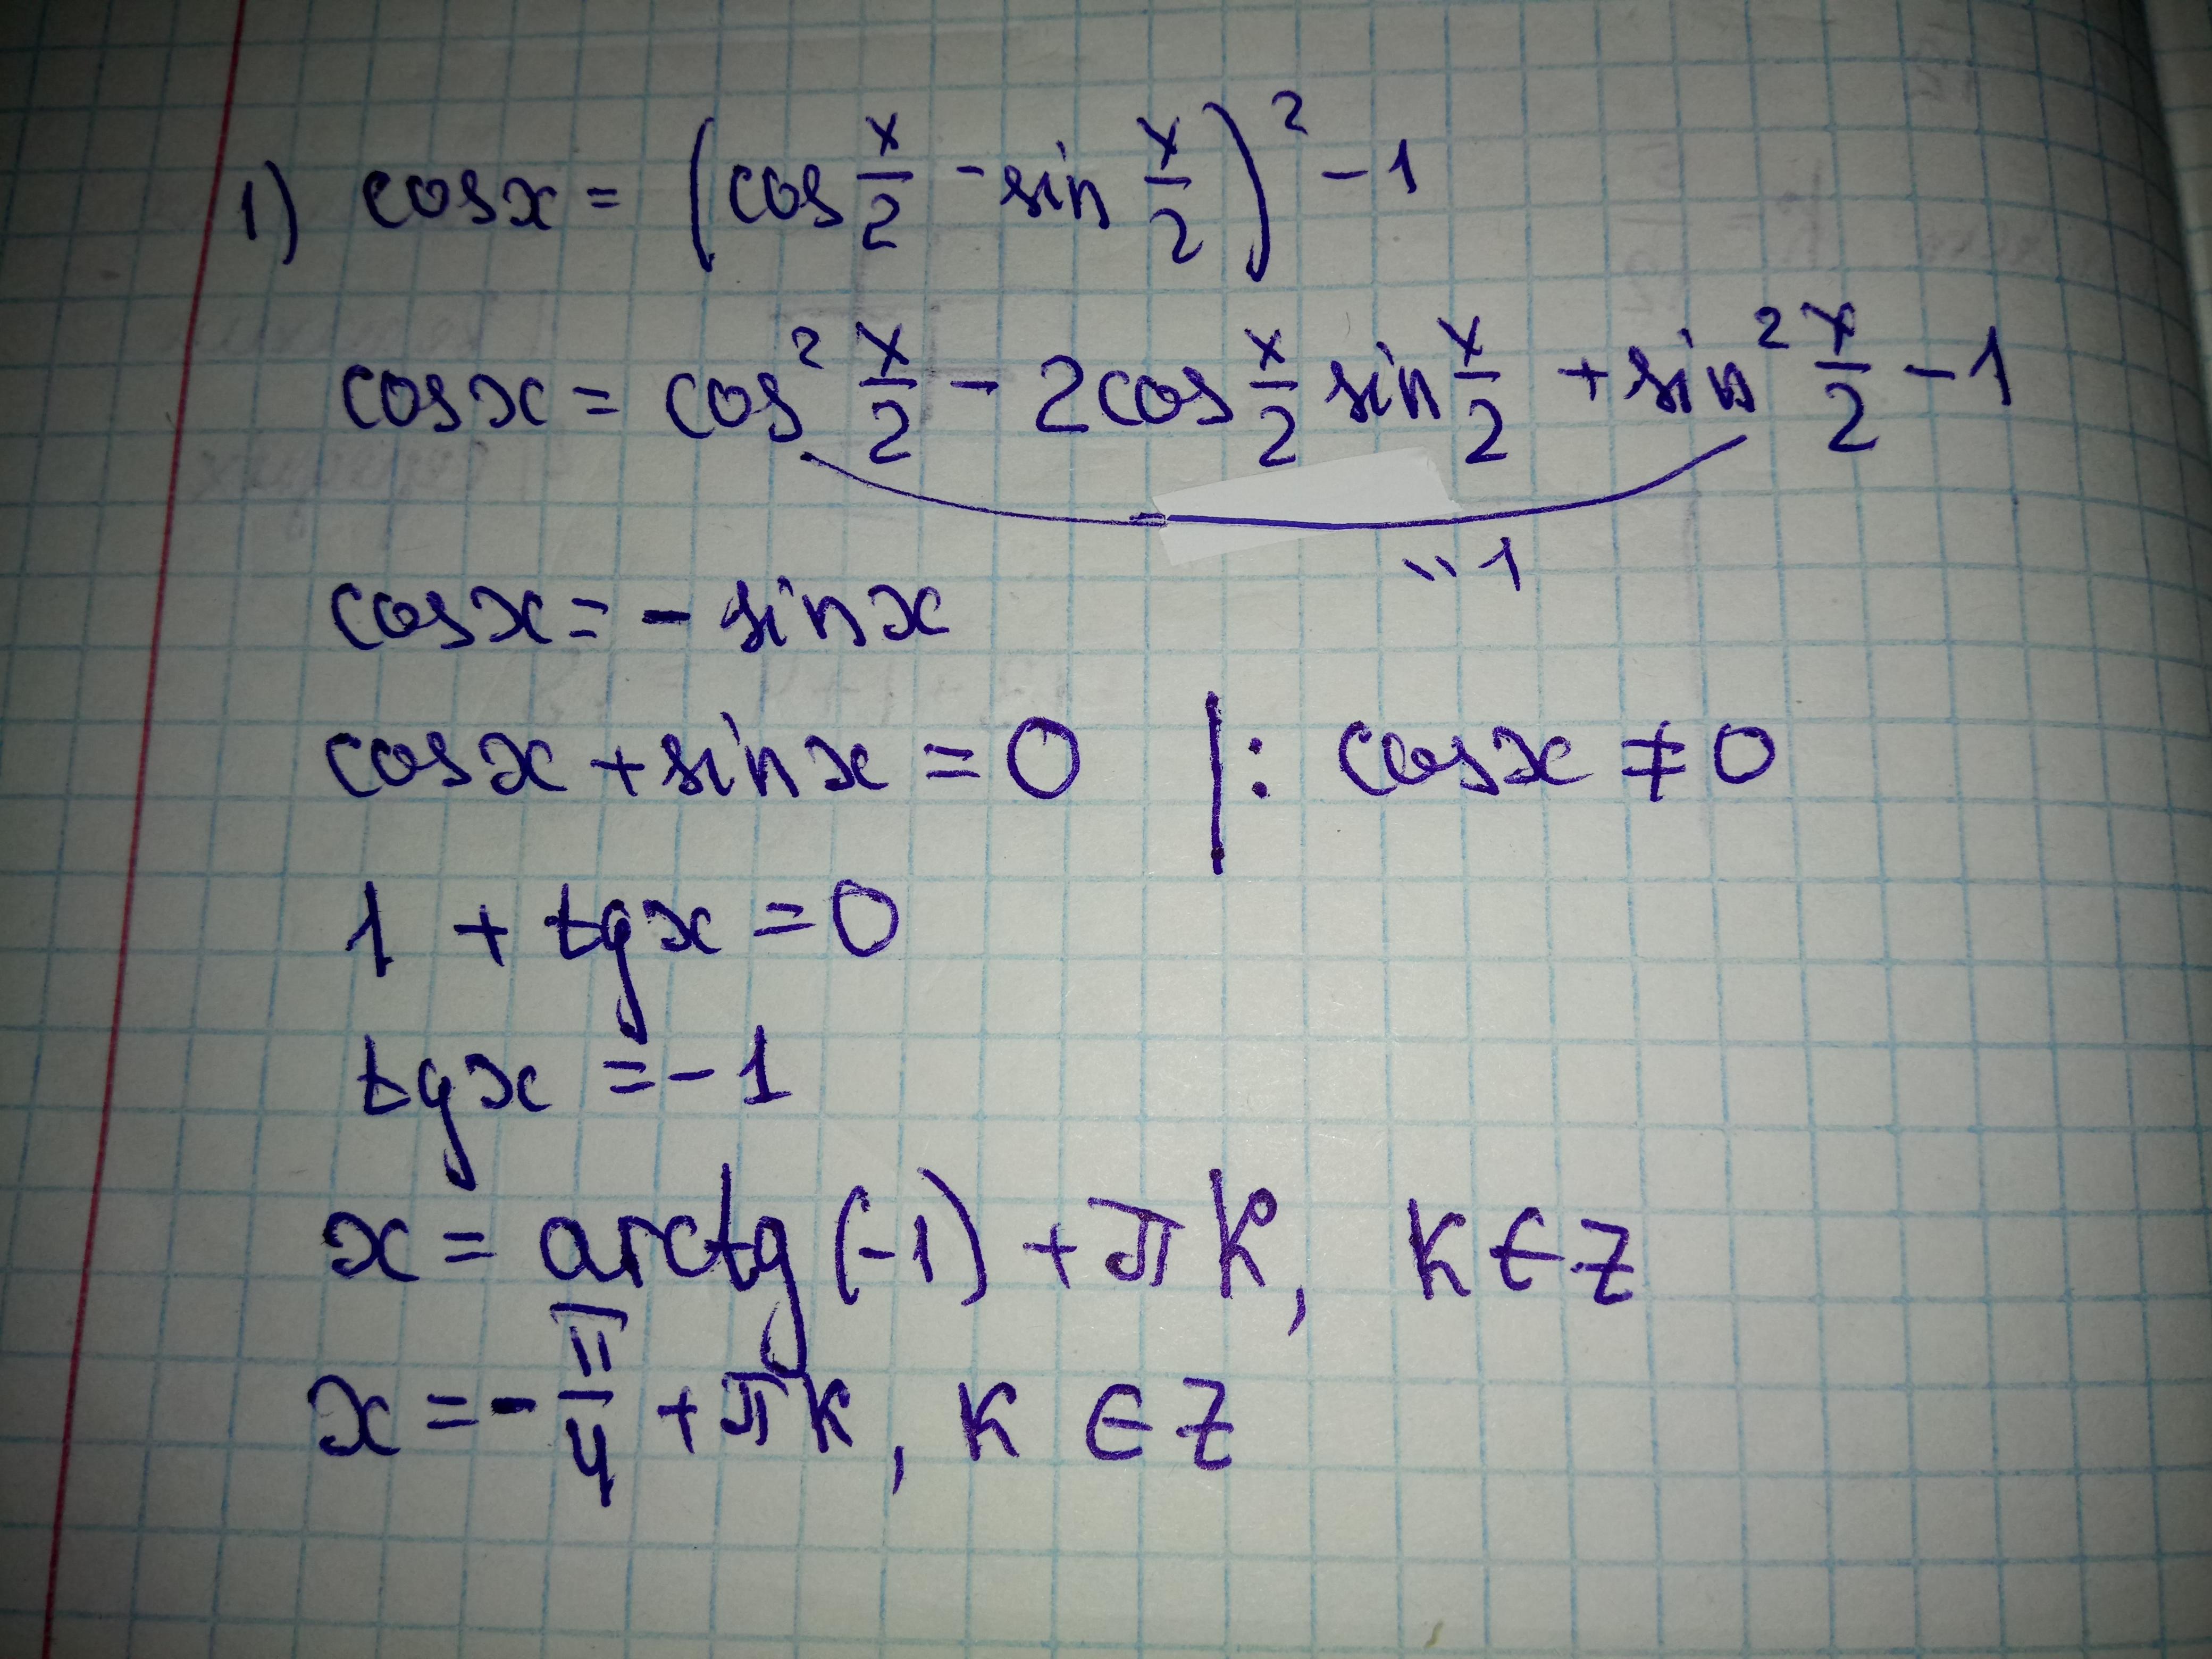 1) cos x = (cos x/2 - sin x/2)² - 1
cos x = cos² x/2 - 2cos x/2 sin x/2 + sin² x/2 - 1
"1
cos x = - sin x
cos x + sin x = 0 |: cos x ≠ 0
1 + tg x = 0
tg x = -1
x = arctg (-1) + πk, k ∈ Z
x = - π/4 + πk, k ∈ Z